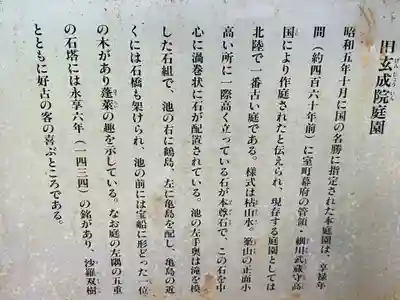 旧玄成院庭園
げんじょういん
昭和五年十月に国の名勝に指定された本庭園は、享禄年
間（約四百六十年前）に室町幕府の管領・細川武蔵守高
国により作庭されたと伝えられ、現存する庭園としては
北陸で一番古い庭である。様式は枯山水。築山の正面小
高い所に一際高く立っている石が本尊石で、この石を中
心に渦巻状に石が配置されている。池の左手奥は滝を模
した石組で、池の右に鶴島、左に亀島を配し、亀島の近
くには石橋も架けられ、池の前には宝船に形どった一位
の木があり蓬莱の趣を示している。なお庭の左隅の五重
の石塔には永享六年（一四三四）の銘があり、沙羅双樹
とともに好古の客の喜ぶところである。